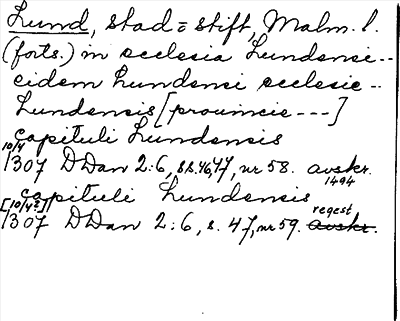 Lund, stad = stift, Malm. l.
(forts.) in ecclesia Lundensi --
eidem Lundensi ecclesie --
Lundensis [prouincie ---]
capituli Lundensis
10/4
1307 DDan 2:6, ss. 46, 47, nr 58. avskr.
1494
capituli Lundensis
[10/4?] regest
1307 DDan 2:6, s. 47, nr 59. avskr.